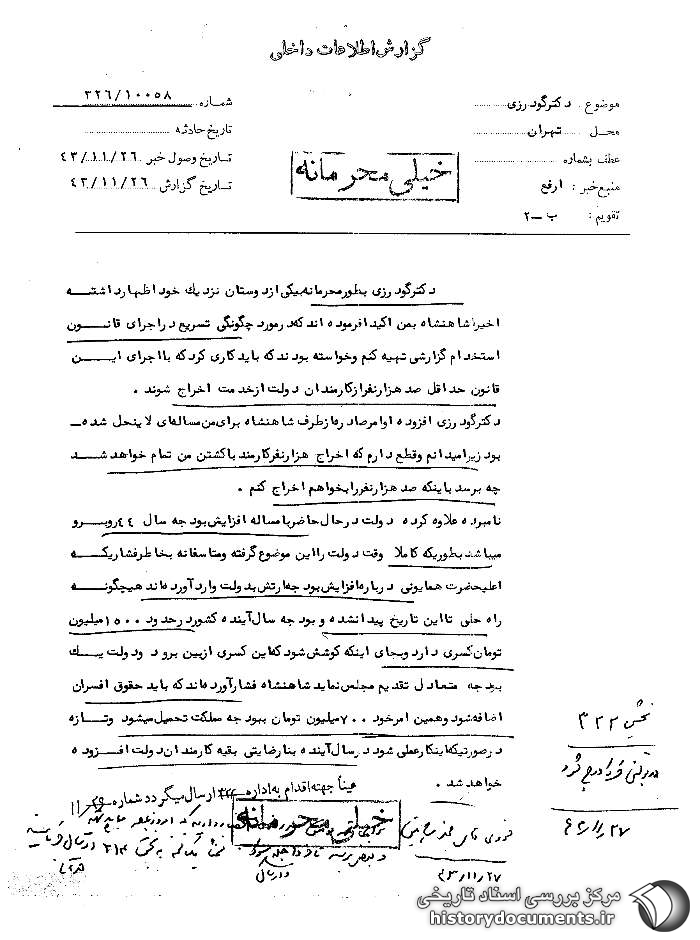 گزارش اطلاعات داخلی
موضوع : دکتر گودرزی
شماره ۳۲۶/۱۰۰۵۸
محل تهران
تاریخ حادثه
عطف بشماره
تاریخ وصول خبر ۴۳/۱۱/۲۶
منبع خبر : ارفع
تاریخ گزارش ۴۳/۱۱/۲۶
تقویم : ب ـ ۲
خیلی محرمانه
دکتر گودرزی بطور محرمانه بیکی از دوستان نزدیک خود اظهار داشته
اخیرا شاهنشاه بمن اکیدا فرموده اند که در مورد چگونگی تسریع در اجرای قانون
استخدام گزارشی تهیه کنم و خواسته بودند که باید کاری کرد که با اجرای این
قانون حداقل صد هزار نفر از کارمندان دولت از خدمت اخراج شوند .
دکتر گودرزی افزوده اوامر صادره از طرف شاهنشاه برای من مساله‌ای لاینحل شده
بود زیرا میدانم و قطع دارم که اخراج هزار نفر کارمند با کشتن من تمام خواهد شد
چه برسد باینکه صد هزار نفر را بخواهم اخراج کنم .
نامبرده علاوه کرده دولت در حال حاضر با مساله افزایش بودجه سال ۴۴ روبرو
میباشد بطوریکه کاملا وقت دولت را این موضوع گرفته و متاسفانه بخاطر فشاریکه
اعلیحضرت همایونی درباره افزایش بودجه ارتش بدولت وارد آورده‌اند هیچگونه
راه حلی تا این تاریخ پیدا نشده و بودجه سال آینده کشور در حدود ۱۵۰۰ میلیون
تومان کسری دارد و بجای اینکه کوشش شود که این کسری از بین برود و دولت یک
بودجه متعادل تقدیم مجلس نماید شاهنشاه فشار آورده‌اند که باید حقوق افسران
اضافه شود و همین امر خود ۷۰۰ میلیون تومان ببودجه مملکت تحمیل میشود و تازه
در صورتیکه اینکار عملی شود در سال آینده بنارضایتی بقیه کارمندان دولت افزوده
خواهد شد .
عینا جهت اقدام به اداره ارسال میگردد شماره
خیلی محرمانه
بخش ۳۲۲
۴۳/۱۱/۲۷
۴۳/۱۱/۲۷
مرکز بررسی اسناد تاریخی
historydocuments.ir